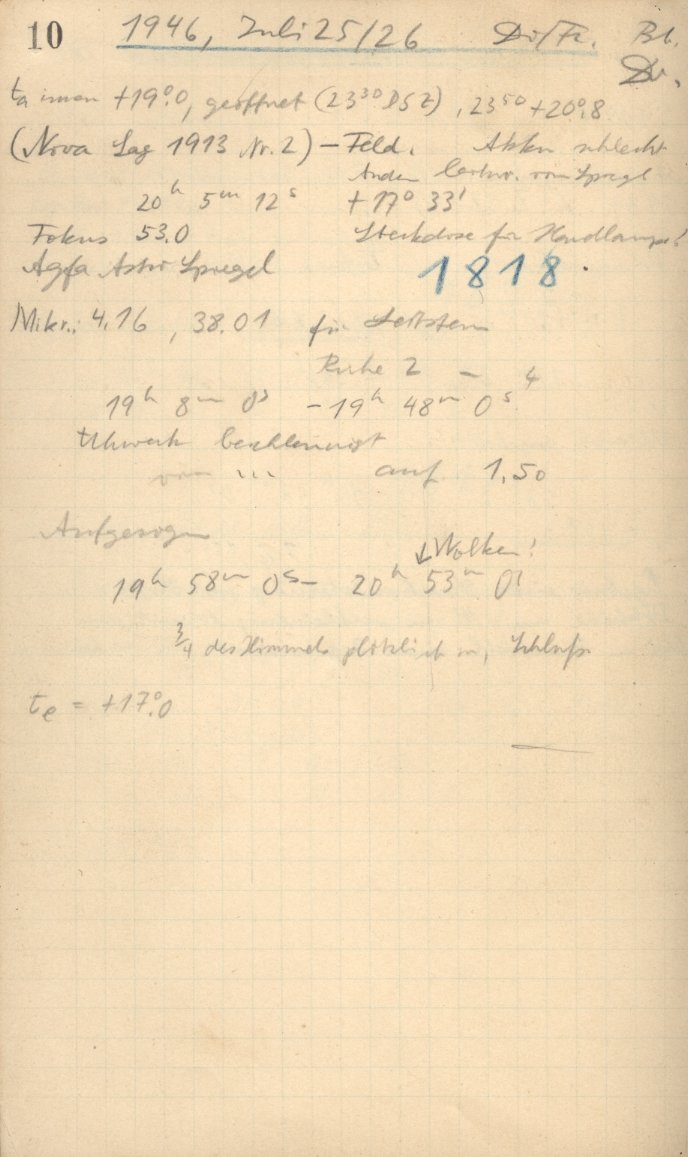 10 1946, Juli 25/26 Do/Fr. Bl.
Dr.
ta innen +19°.0, geöffnet (23³⁰ DSZ), 23⁵⁰ +20°.8
(Nova Sag 1913 Nr. 2) – Feld. Akku schlecht
vom Spiegel
20ʰ 5ᵐ 12ˢ +17° 33'
Fokus 53.0 Steckdose für Handlampe!
Agfa Astro Spiegel 1818.
Mikr.: 4.16, 38.01 für Leitstern
Ruhe 2 – 4
19ʰ 8ᵐ 0ˢ – 19ʰ 48ᵐ 0ˢ
Uhrwerk beschleunigt
von ... auf 1,50
Aufgezogen
↓Wolken!
19ʰ 58ᵐ 0ˢ – 20ʰ 53ᵐ 0ˢ
¾ des Himmels plötzlich zu, Schluß
te = +17°.0